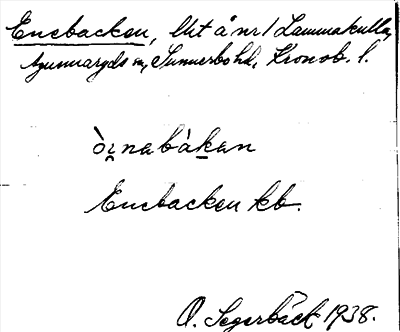 Enebacken, lht å nr 1 Lammakulla,
Agunnaryds sn, Sunnerbo hd, Kronob. l.
ò̀i̯nabàkan
Enebacken kb.
O. Segerbäck 1938.